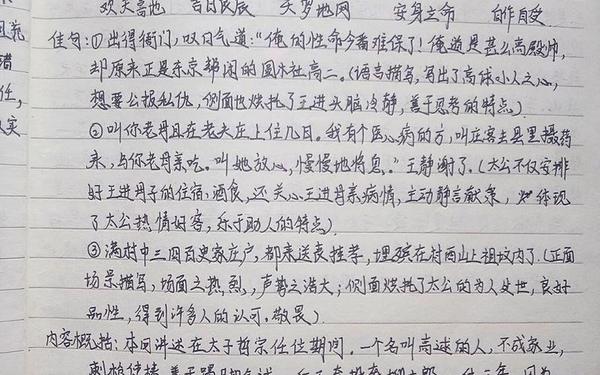 欢天喜地 吉日良辰 天罗地网 安身立命 自作自受
佳句:①出得衙门,叹口气道:“俺的性命今番难保了!俺道是甚么高殿帅,
却原来正是东京帮闲的圆社高二。(语言描写,写出了高俅小人之心,
想要公报私仇,侧面也烘托了王进头脑冷静,善于思考的特点)
②叫你老母且在老夫庄上住几日。我有个医心疼的方,叫庄客去县里撮药
来,与你老母亲吃。叫她放心,慢慢地将息。”王进谢了。(太公不仅安排
好王进母子的住宿、酒食,还关心王进母亲病情,主动献药,体现
了太公热情好客,乐于助人的特点)
③满村中三四百史家庄户,都来送丧挂孝,埋殡在村西山上祖坟内了(正面
场景描写,场面之热烈,声势之浩大;侧面烘托了太公的为人处世,良好
品性,得到许多人的认可、敬畏)
内容概括:本回讲述在太子哲宗在位期间,一个名叫高逑的人,不成家业,